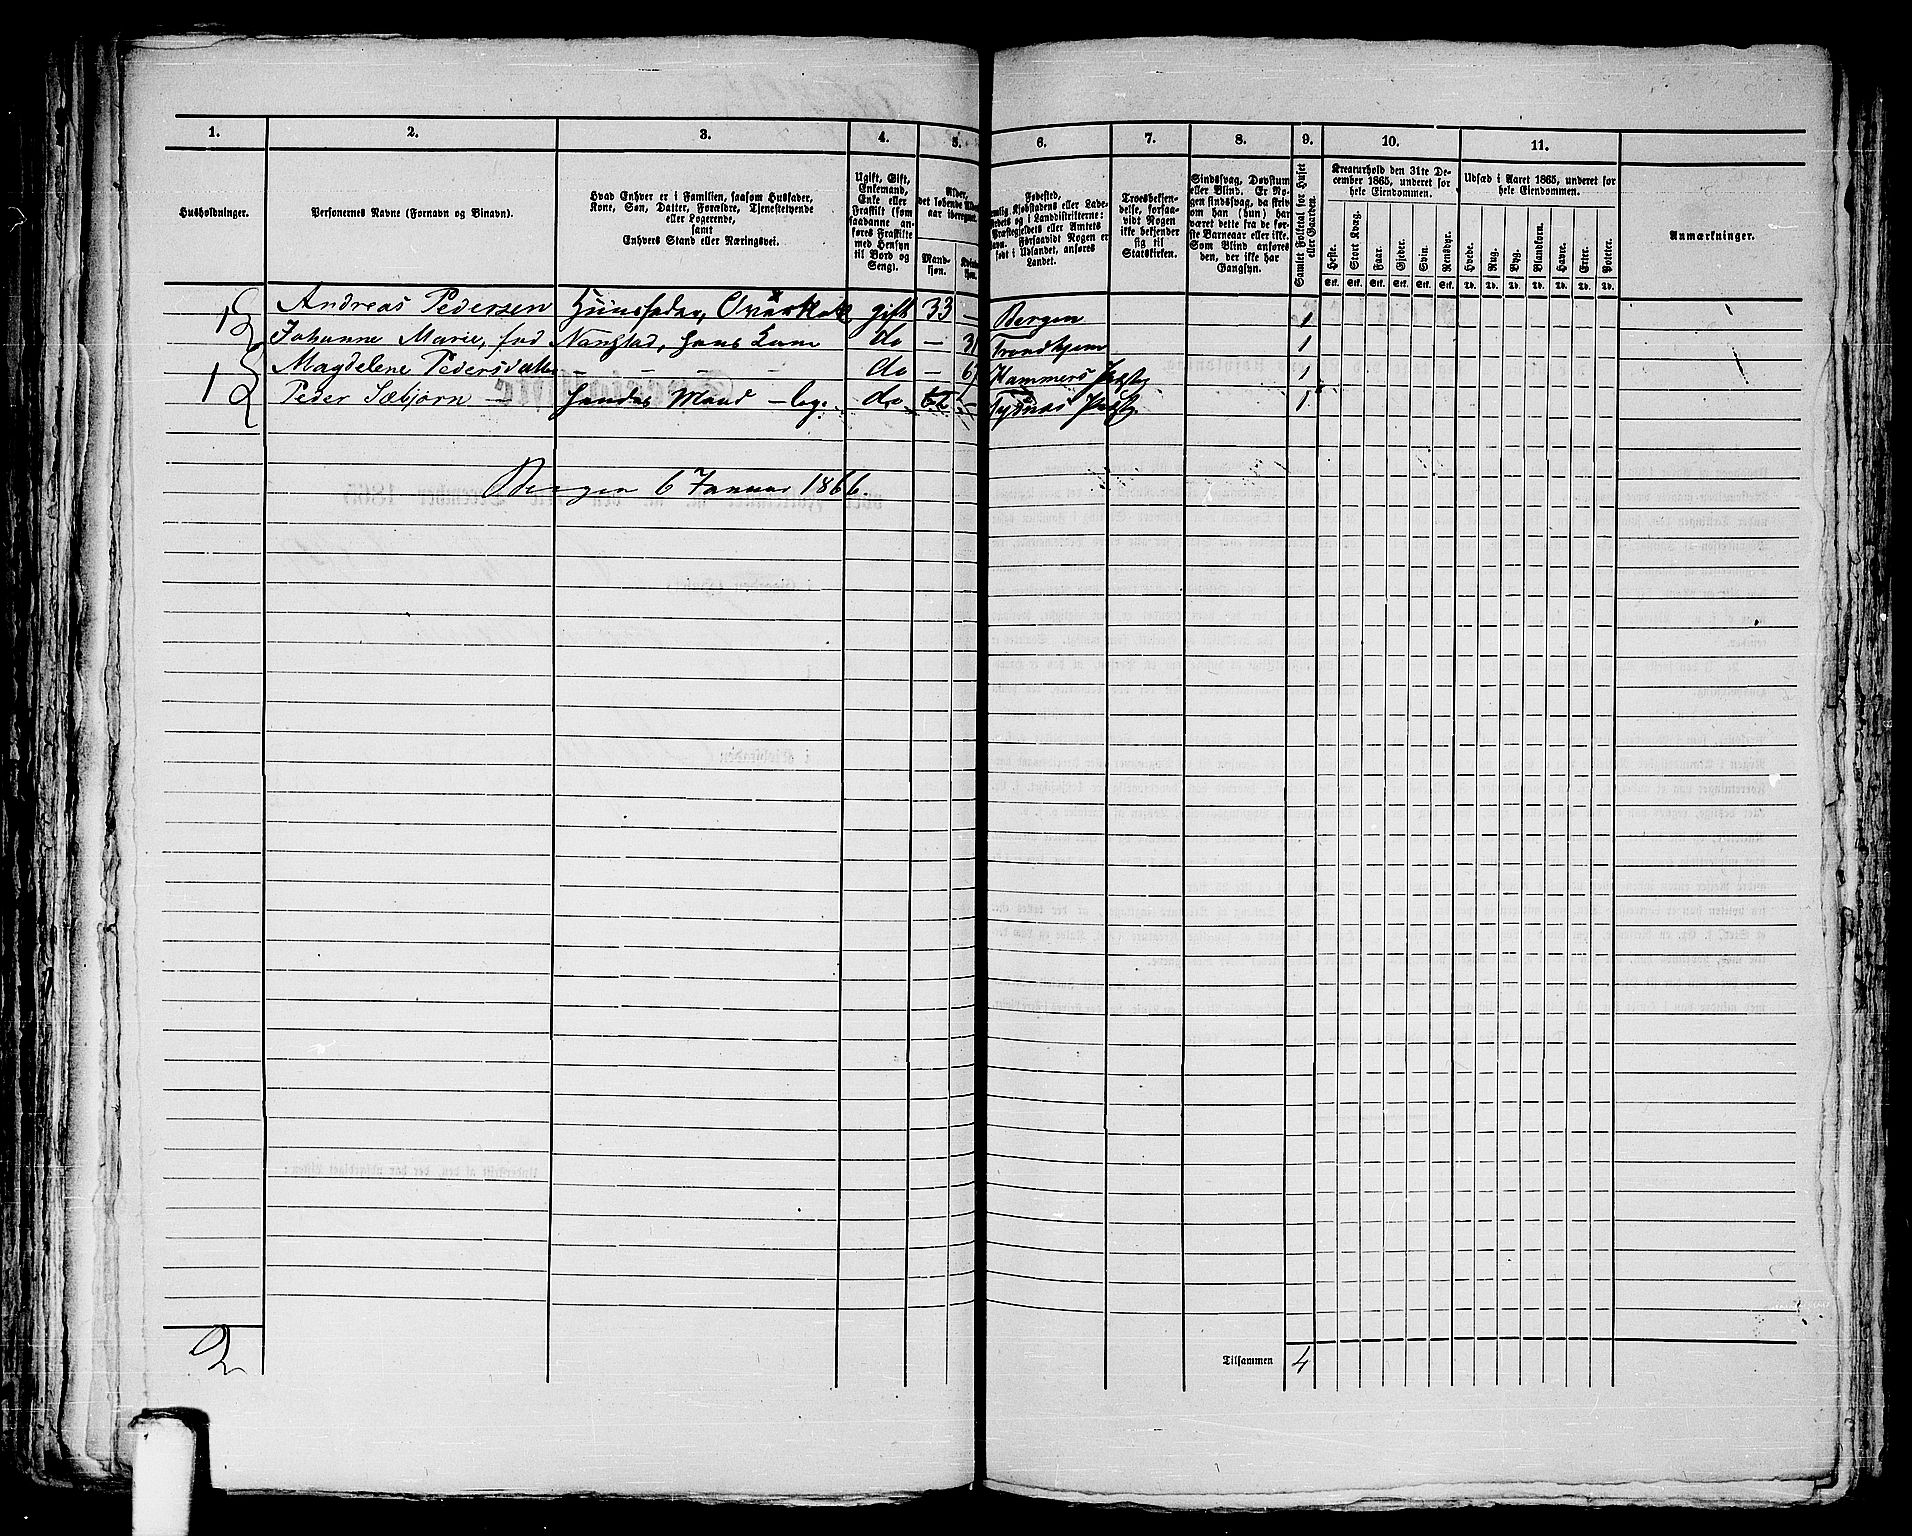 1. 2. 3. 4. 5. 6. 7. 8. 9. 10. 11.
Husholdninger.
Personernes Navne (Fornavn og Binavn).
Hvad Enhver er i Familien, saasom Husfader,
Kone, Søn, Datter, Forældre, Tjenestetyende
eller Logerende,
samt
Enhvers Stand eller Næringsvei.
Ugift, Gift,
Enkemand,
Enke eller
Fraskilt (som
saadanne an-
føres Fraskilte
med Hensyn
til Bord og
Seng).
Alder,
det løbende
aar iberegnet.
Mand-
kjøn.
Kvinde-
kjøn.
Fødested,
Kjøbstadens eller Lade-
stedets og i Landdistrikterne:
Præstegjeldets eller Amtets
Navn. Forsaavidt Nogen er
født i Udlandet, anføres
Landet.
Troesbekjen-
delse, forsaa-
vidt Nogen
ikke bekjender
sig til
Statskirken.
Sindssvag, Døvstum
eller Blind. Er No-
gen sindssvag, da skriv
om han (hun) har
været dette fra de før-
ste Barneaar eller ikke.
Som Blind anføres
den, der ikke har
Gangsyn.
Samlet Folketal for Huset
eller Gaarden.
Kreaturhold den 31te De-
cember 1865, underet for
hele Eiendommen.
Heste. Stort Kvæg. Faar. Gjeder. Svin. Rensdyr.
Udsæd i Aaret 1865, underet for
hele Eiendommen.
Hvede. Rug. Byg. Blandkorn. Havre. Erter. Poteter.
Anmærkninger.
Stk. Stk. Stk. Stk. Stk. Stk. Td. Td. Td. Td. Td. Td. Td.
1 Andreas Pedersen gift 33 — Bergen 1
Johanne Marie, do — 31 Trondhjem 1
1 Magdelene Pedersdatter — — — — do — 67 Hammers Præstg 1
Peder Sæbjørn — Hendes Mand — do 62 — Tysnæs Præstg 1
Bergen 6 Januar 1866.
2
Tilsammen 4